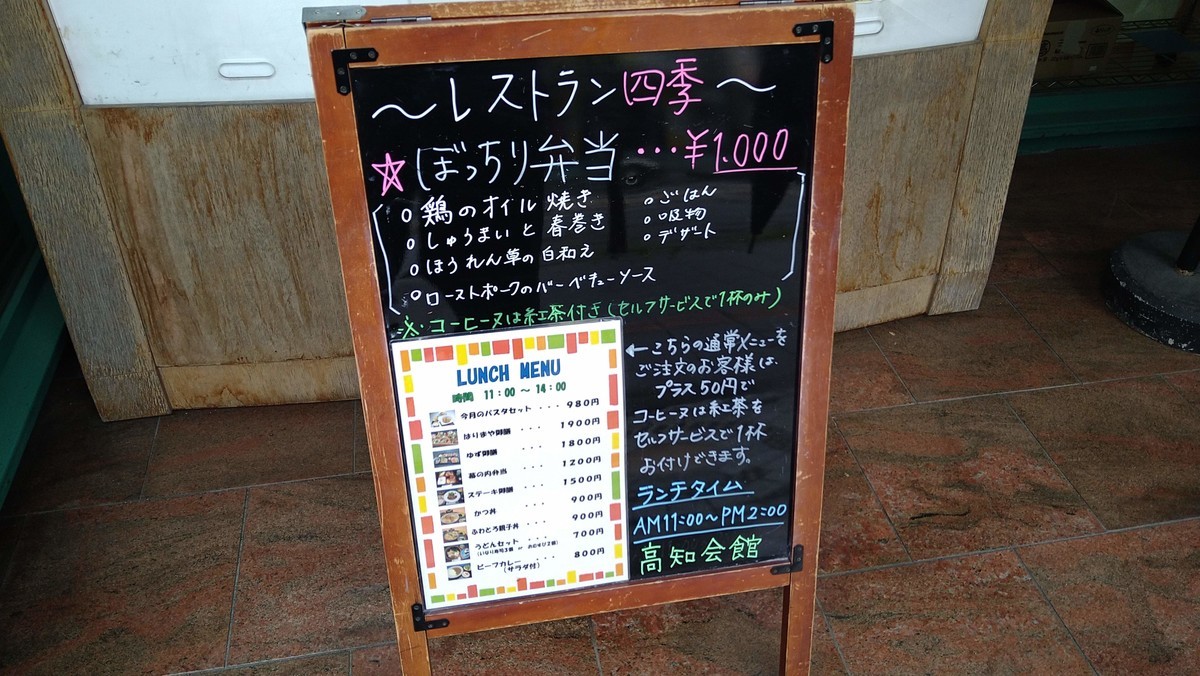 ～レストラン四季～
☆ぼっちり弁当…¥1.000
○鶏のオイル焼き
○しゅうまいと春巻き
○ほうれん草の白和え
○ローストポークのバーベキューソース
○ごはん
○吸物
○デザート
※コーヒー又は紅茶付き(セルフサービスで1杯のみ)
LUNCH MENU
時間 11:00～14:00
今月のパスタセット・・・980円
はりまや御膳 ・・・1900円
ゆず御膳 ・・・1800円
幕の内弁当 ・・・1200円
ステーキ御膳 ・・・1500円
かつ丼 ・・・900円
ふわとろ親子丼 ・・・900円
うどんセット ・・・700円
(いなり寿司3個 or おむすび2個)
ビーフカレー ・・・800円
(サラダ付)
←こちらの通常メニューを
ご注文のお客様は、
プラス50円で
コーヒー又は紅茶を
セルフサービスで1杯
お付けできます。
ランチタイム
AM11:00～PM2:00
高知会館